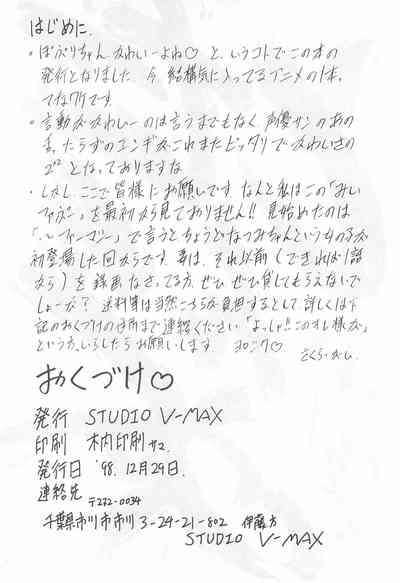 はじめに.
・ぽぷりちゃんかわいーよね♡ と、いうコトでこの本の
発行となりました 今、結構気に入ってるアニメの1本。
てなワケです.
・言動がかわいーのは言うまでもなく、声優サンのあの
舌ったらずのエンギがこれまたピッタリでかわいさの
2²² となってありますな
・しかし、ここで皆様にお願いです なんと私はこの「
」を最初から見ておりません!! 見始めたのは
で言うとちょうどなつみちゃんというもの子が
初登場した回からです. 事は、それ以前(できれば1話
から)を録画なさってる方、ぜひ ぜひ貸してもらえないで
しょーか? 送料等は当然こちらが負担するとして 詳しくは下
記のおくづけの住所まで連絡ください 「よっしゃ!!このオレ様が」
という方、いらしたらお願いします.
さくら・
おくづけ♡
発行 STUDIO V-MAX
印刷 木内印刷サマ.
発行日 '98. 12月29日.
連絡先 〒272-0034
千葉県市川市市川 3-24-21-802 伊藤方
STUDIO V-MAX